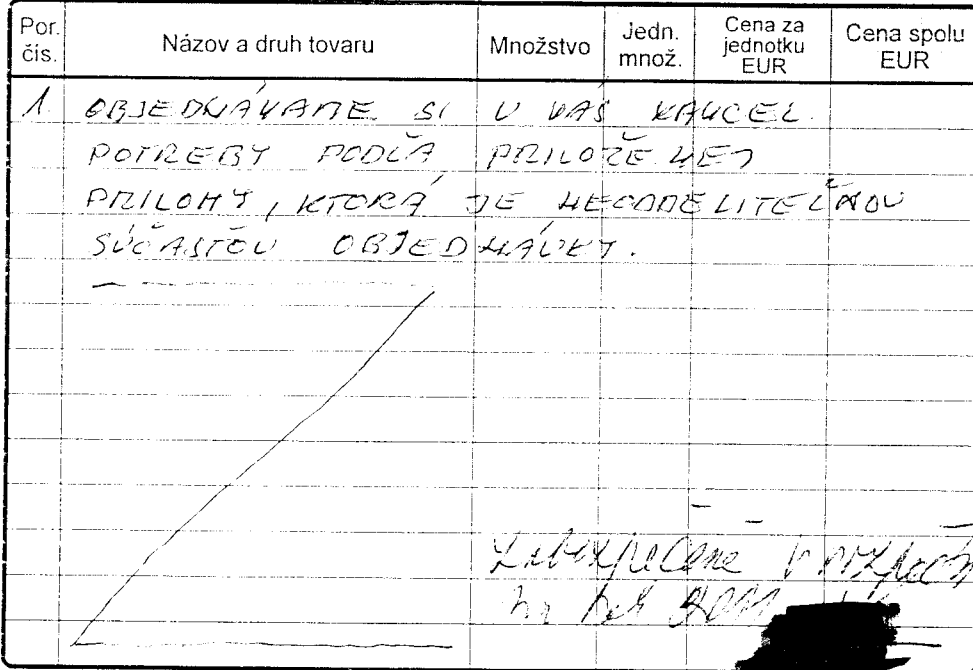 Por. čís. Názov a druh tovaru Množstvo Jedn. množ. Cena za jednotku EUR Cena spolu EUR
1. OBJEDNÁVAME SI U VÁS KANCEL.
POTREBY PODĽA PRILOŽENEJ
PRÍLOHY, KTORÁ JE NEODDELITEĽNOU
SÚČASŤOU OBJEDNÁVKY.
Zabezpečené v rozpočte
na rok